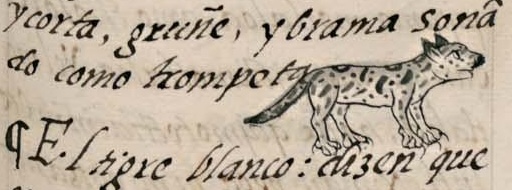 ycorta, gruñe, ybrama sonã
do como trompeta
¶ El tigre blanco: dizen que